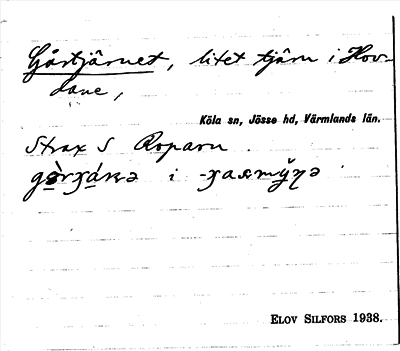 Gårtjärnet, litet tjärn i Hov-
dane,
Köla sn, Jösse hd, Värmlands län.
Strax S Roparn
i
ELOV SILFORS 1938.